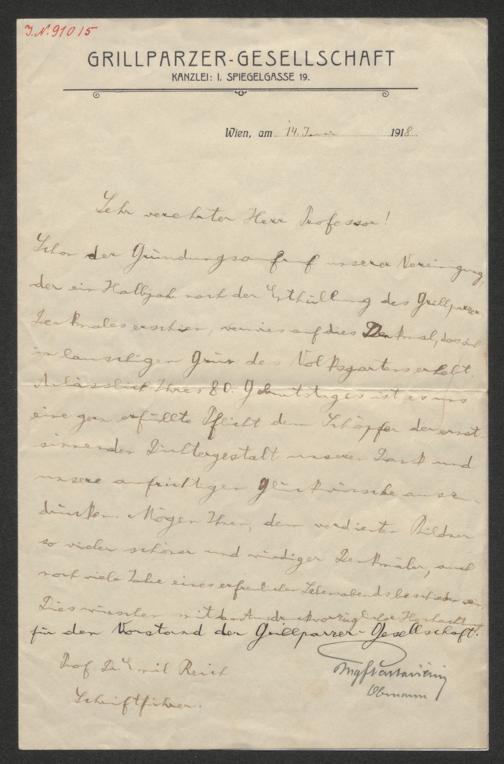 J.N. 91015
GRILLPARZER-GESELLSCHAFT
KANZLEI: I. SPIEGELGASSE 19.
Wien, am 14. 1918.
Sehr verehrter Herr Professor!
Schon der Gründungsaufruf unserer Vereinigung,
der ein Halbjahr nach der Enthüllung des Grillparzer
Denkmales erschien, verwies auf dies Denkmal, das sich
im lauschigen Grün des Volksgartens erhebt.
Anlässlich Ihres 80. Geburtstages ist es uns
eine gern erfüllte Pflicht dem Schöpfer der ernst
sinnenden Dichtergestalt unseren Dank und
unsere aufrichtigen Glückwünsche auszu-
drücken. Mögen Ihnen, dem verdienten Bildner
so vieler schöner und würdiger Denkmäler, auch
noch viele Jahre eines erfreulichen Lebensabends beschieden sein.
Dies wünschen mit dem Ausdruck vorzüglicher Hochachtung
für den Vorstand der Grillparzer-Gesellschaft:
Prof. Dr. Emil Reich
Obmann
Schriftführer.